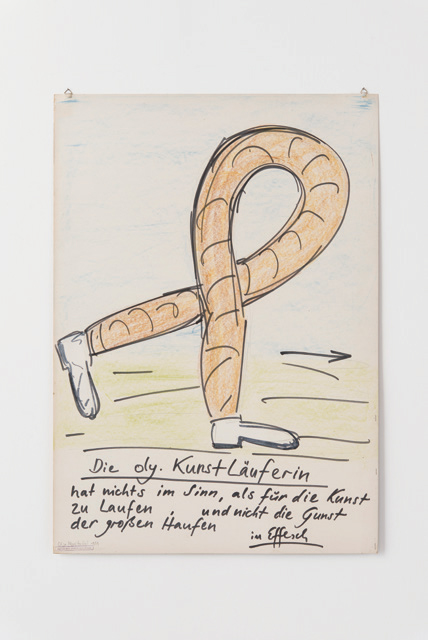 Die oly. KunstLäuferin
hat nichts im Sinn, als für die Kunst
zu Laufen, und nicht die Gunst
der großen Haufen
in Effesch